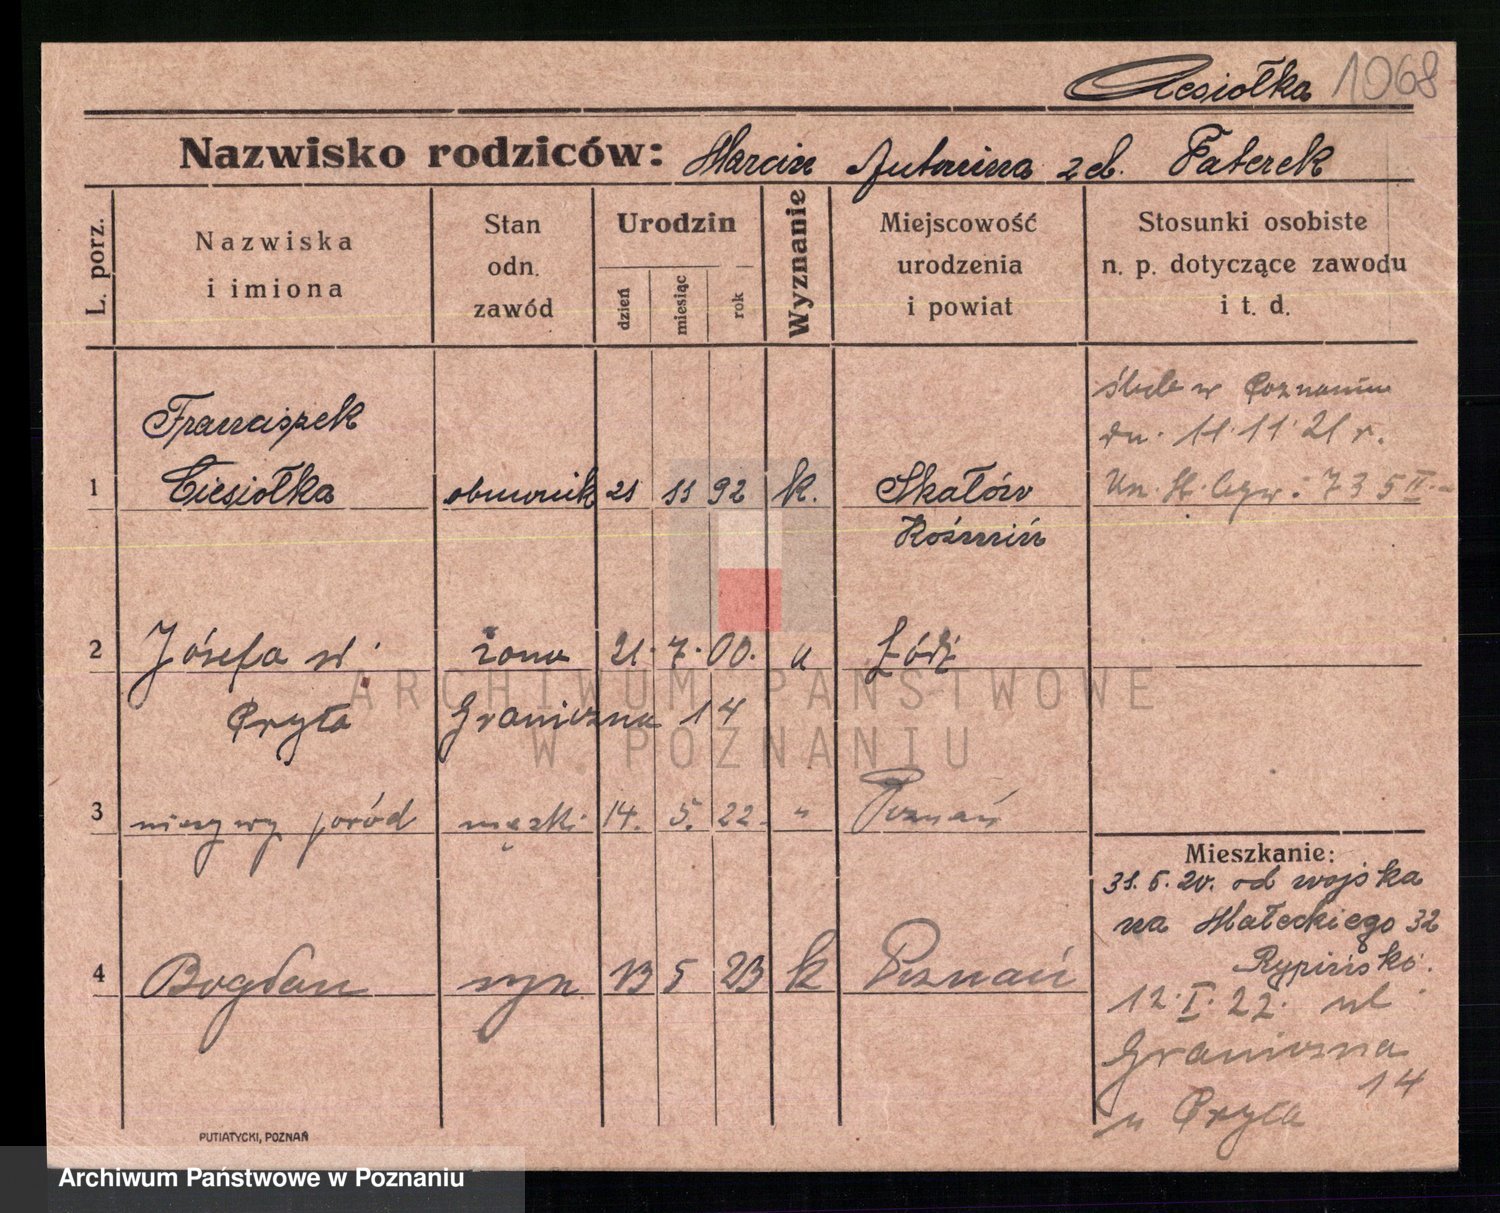 Ciesiołka 1068
Nazwisko rodziców: Marcin Antonina zd. Paterek
L. porz.
Nazwiska
i imiona
Stan
odn.
zawód
Urodzin
dzień
miesiąc
rok
Wyznanie
Miejscowość
urodzenia
i powiat
Stosunki osobiste
n. p. dotyczące zawodu
i t. d.
Franciszek
1 Ciesiołka obuwnik 21 11 92 k. Skałów
Koźmin
ślub w Poznaniu
dn. 11.11.21 r.
Un. St. Cyw: 735 II.
2 Józefa ż żona 21. 7. 00. " Łódź
Pryła Graniczna 14
3 nieżywy poród męski 14. 5. 22. " Poznań
4 Bogdan syn 13 5 23 k Poznań
Mieszkanie:
31. 5. 20. od wojska
na Małeckiego 32
Rypińsk
12. I. 22. ul.
Graniczna
14
u Pryła
PUTIATYCKI, POZNAŃ
ARCHIWUM PAŃSTWOWE
W POZNANIU
Archiwum Państwowe w Poznaniu